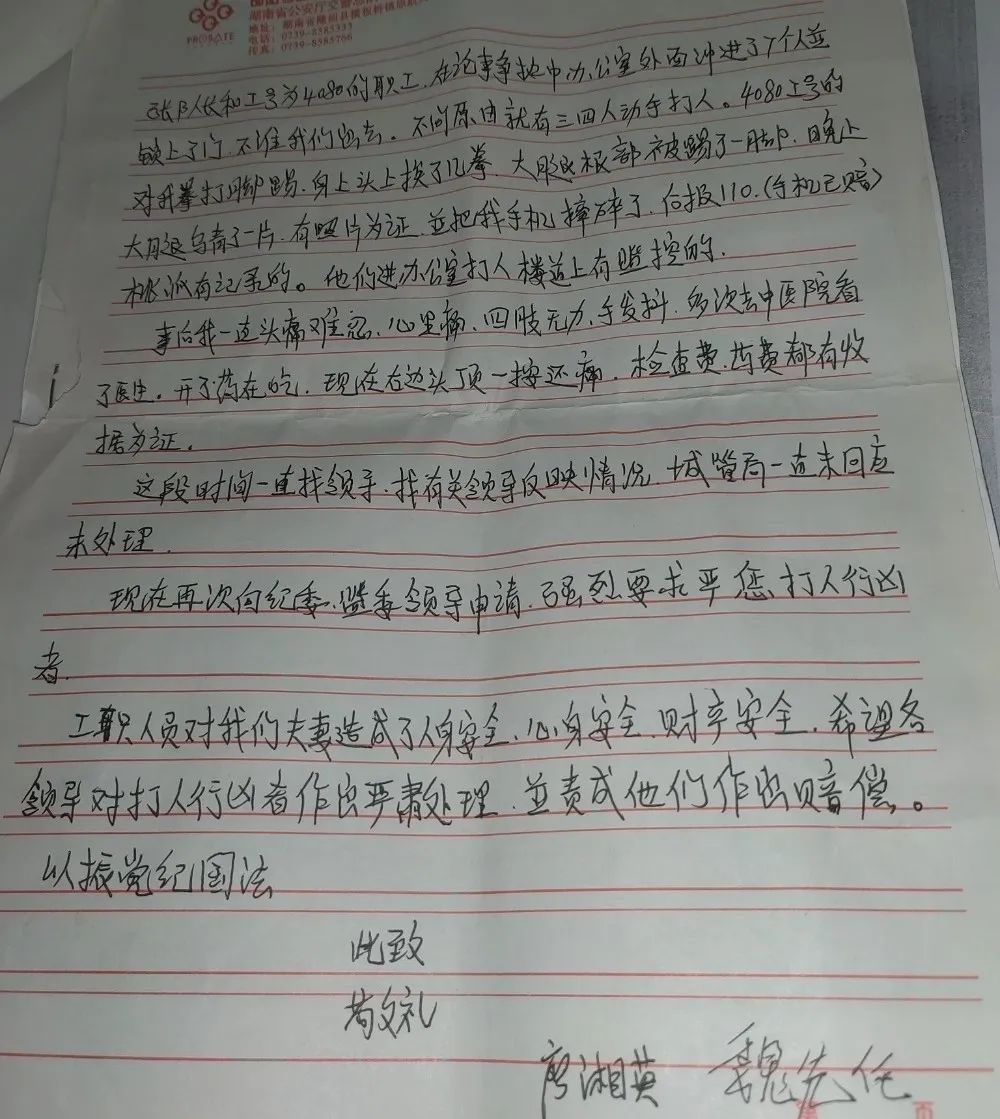 PROBATE
湖南省公安厅交警总队
地址：湖南省隆回县横板桥镇原航天
电话：0739-8385333
传真：0739-8385766
张队长和工号为4080的职工，在论事争执中办公室外面冲进了7个人並
锁上了门，不准我们出去。不问原由就有三四人动手打人。4080工号的
对我拳打脚踢，身上头上挨了几拳，大腿根部被踢了一脚，晚上
大腿乌青了一片，有照片为证，並把我手机摔碎了，后报110.（手机已赔）
桃派有记录的。他们进办公室打人楼道上有监控的.
事后我一直头痛难忍，心里痛，四肢无力，手发抖，多次去中医院看
了医生。开了药在吃，现在右边头顶一按还痛，检查费，药费都有收
据为证.
这段时间一直找领导，找有关领导反映情况，城管局一直未回应
未处理.
现在再次向纪委、监委领导申请，强烈要求严惩打人行凶
者.
工职人员对我们夫妻造成了人身安全，心身安全，财产安全，希望各
领导对打人行凶者作出严肃处理，並责成他们作出赔偿。
以振党纪国法
此致
敬礼
廖湘英 魏先任
页